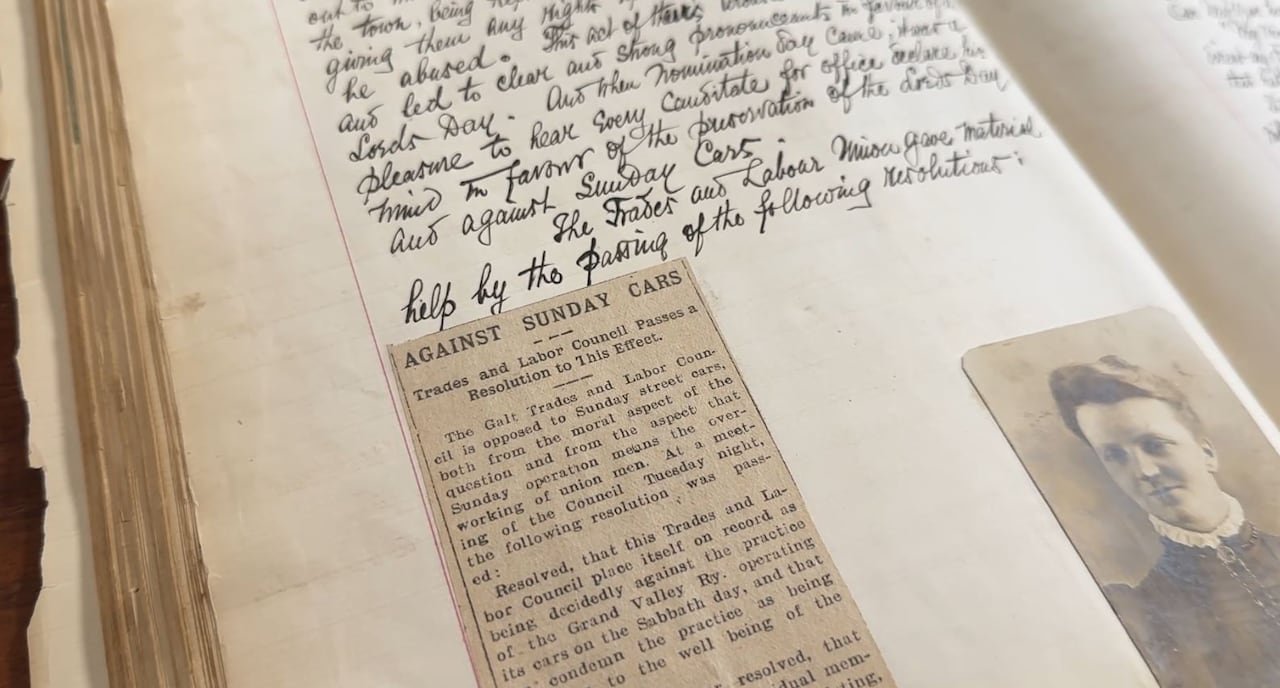 out to
the town, being
giving them any rights
he abused. This act of theirs
and led to clear and strong pronouncements in favour of
Lords Day. And when Nomination Day came, it was a
pleasure to hear every Canditate for office declare his
mind in favour of the preservation of the Lords Day
and against Sunday Cars.
The Trades and Labour Union gave material
help by the passing of the following resolutions:
AGAINST SUNDAY CARS
Trades and Labor Council Passes a
Resolution to This Effect.
The Galt Trades and Labor Coun-
cil is opposed to Sunday street cars,
both from the moral aspect of the
question and from the aspect that
Sunday operation means the over-
working of union men. At a meet-
ing of the Council Tuesday night,
the following resolution was pass-
ed:
Resolved, that this Trades and La-
bor Council place itself on record as
being decidedly against the practice
of the Grand Valley Ry. operating
its cars on the Sabbath day, and that
condemn the practice as being
to the well being of the
resolved, that
mem-